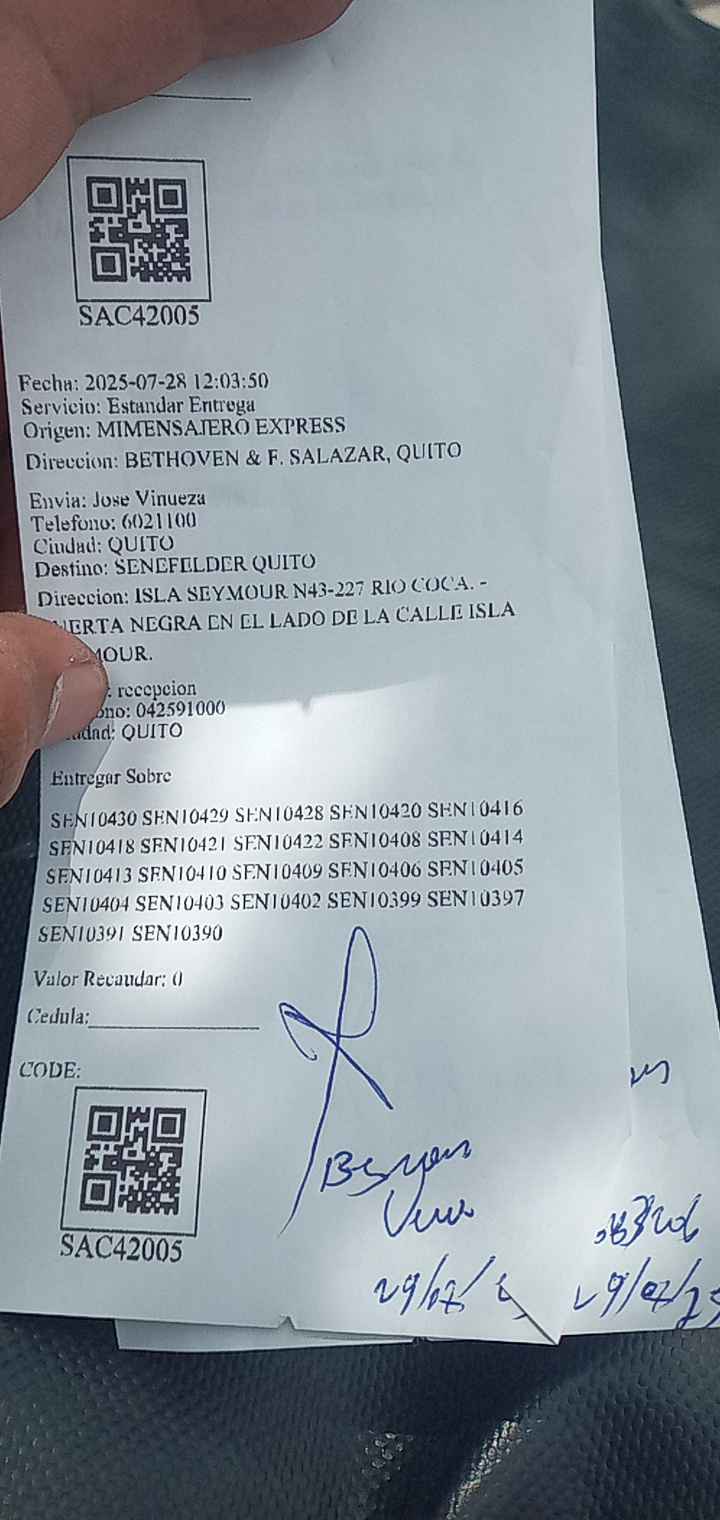 SAC42005
Fecha: 2025-07-28 12:03:50
Servicio: Estandar Entrega
Origen: MIMENSAJERO EXPRESS
Direccion: BETHOVEN & F. SALAZAR, QUITO
Envia: Jose Vinueza
Telefono: 6021100
Ciudad: QUITO
Destino: SENEFELDER QUITO
Direccion: ISLA SEYMOUR N43-227 RIO COCA. -
UERTA NEGRA EN EL LADO DE LA CALLE ISLA
MOUR.
: recepcion
ono: 042591000
udad: QUITO
Entregar Sobre
SEN10430 SEN10429 SEN10428 SEN10420 SEN10416
SEN10418 SEN10421 SEN10422 SEN10408 SEN10414
SEN10413 SEN10410 SEN10409 SEN10406 SEN10405
SEN10404 SEN10403 SEN10402 SEN10399 SEN10397
SEN10391 SEN10390
Valor Recaudar: 0
Cedula:
CODE:
SAC42005
29/07/
29/07/25